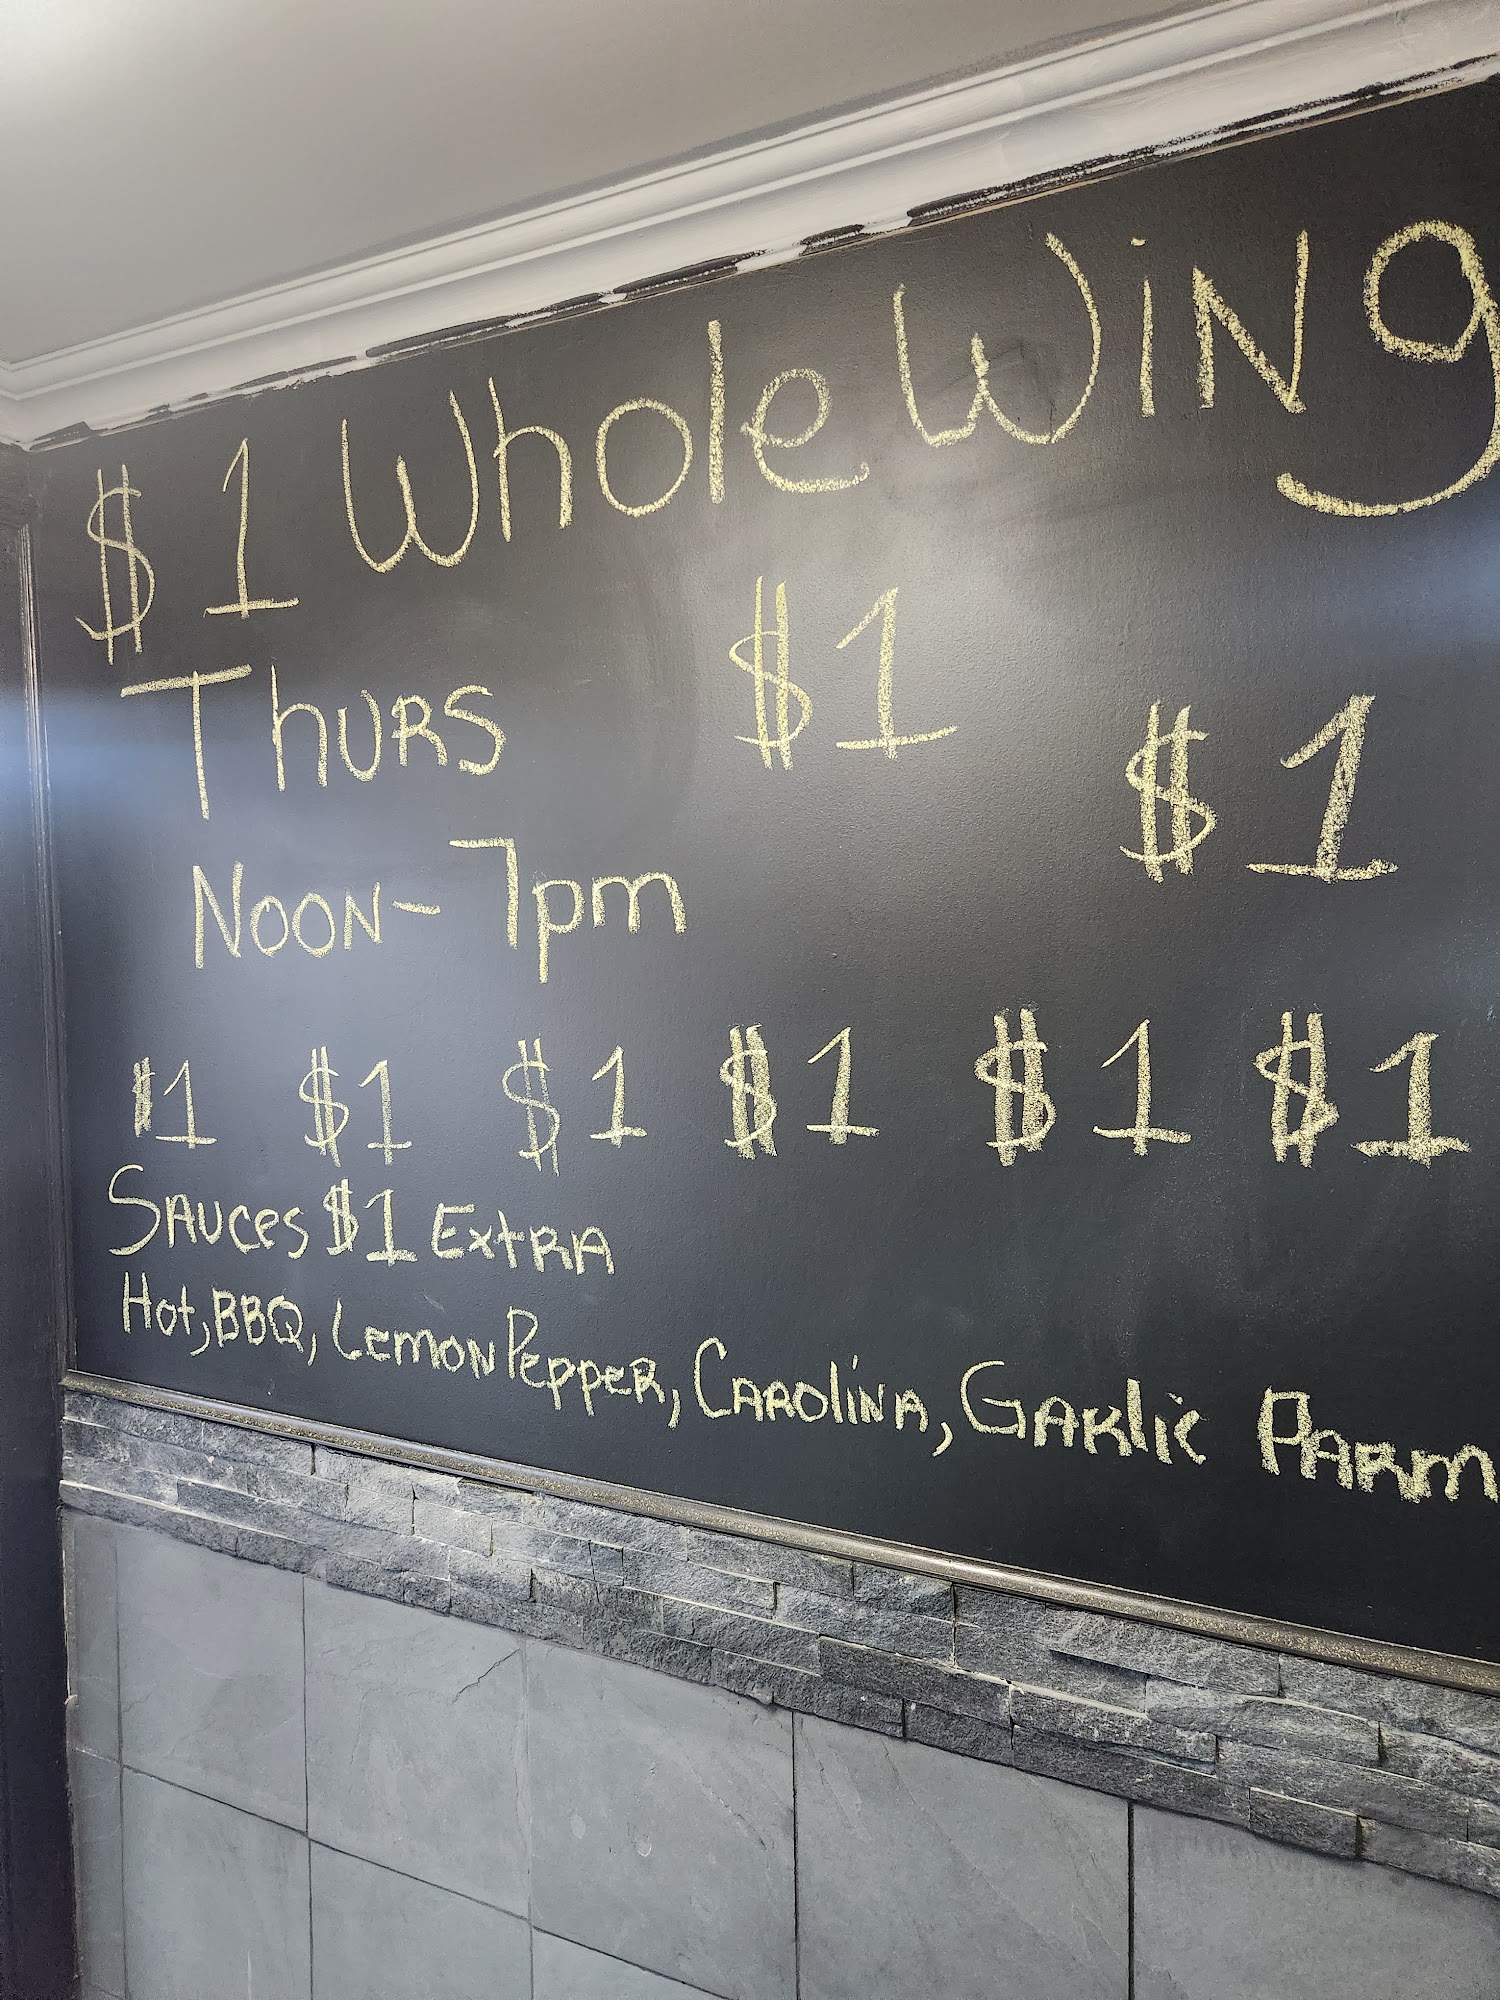 $1 Whole Wing
Thurs $1
$1
Noon-7pm
$1 $1 $1 $1 $1 $1
Sauces $1 Extra
Hot, BBQ, Lemon Pepper, Carolina, Garlic Parm